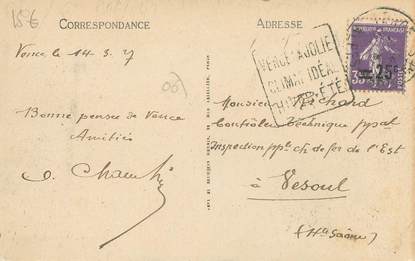 15€
CORRESPONDANCE
ADRESSE
Vence le 14.3.
(06)
VENCE LA JOLIE
CLIMAT IDÉAL
ÉTÉ
Bonne pensée de Vence
Amitiés
Monsieur Richard
Contrôleur Technique ppal
Inspection pple ch de fer de l'Est
à Vesoul
(Hte Saône)